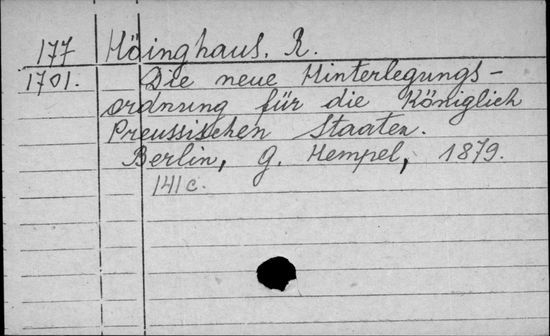 177 Höinghaus. R.
1701. Die neue Hinterlegungs-
ordnung für die Königlich
Preussischen Staaten.
Berlin, G. Hempel, 1879.
141c.